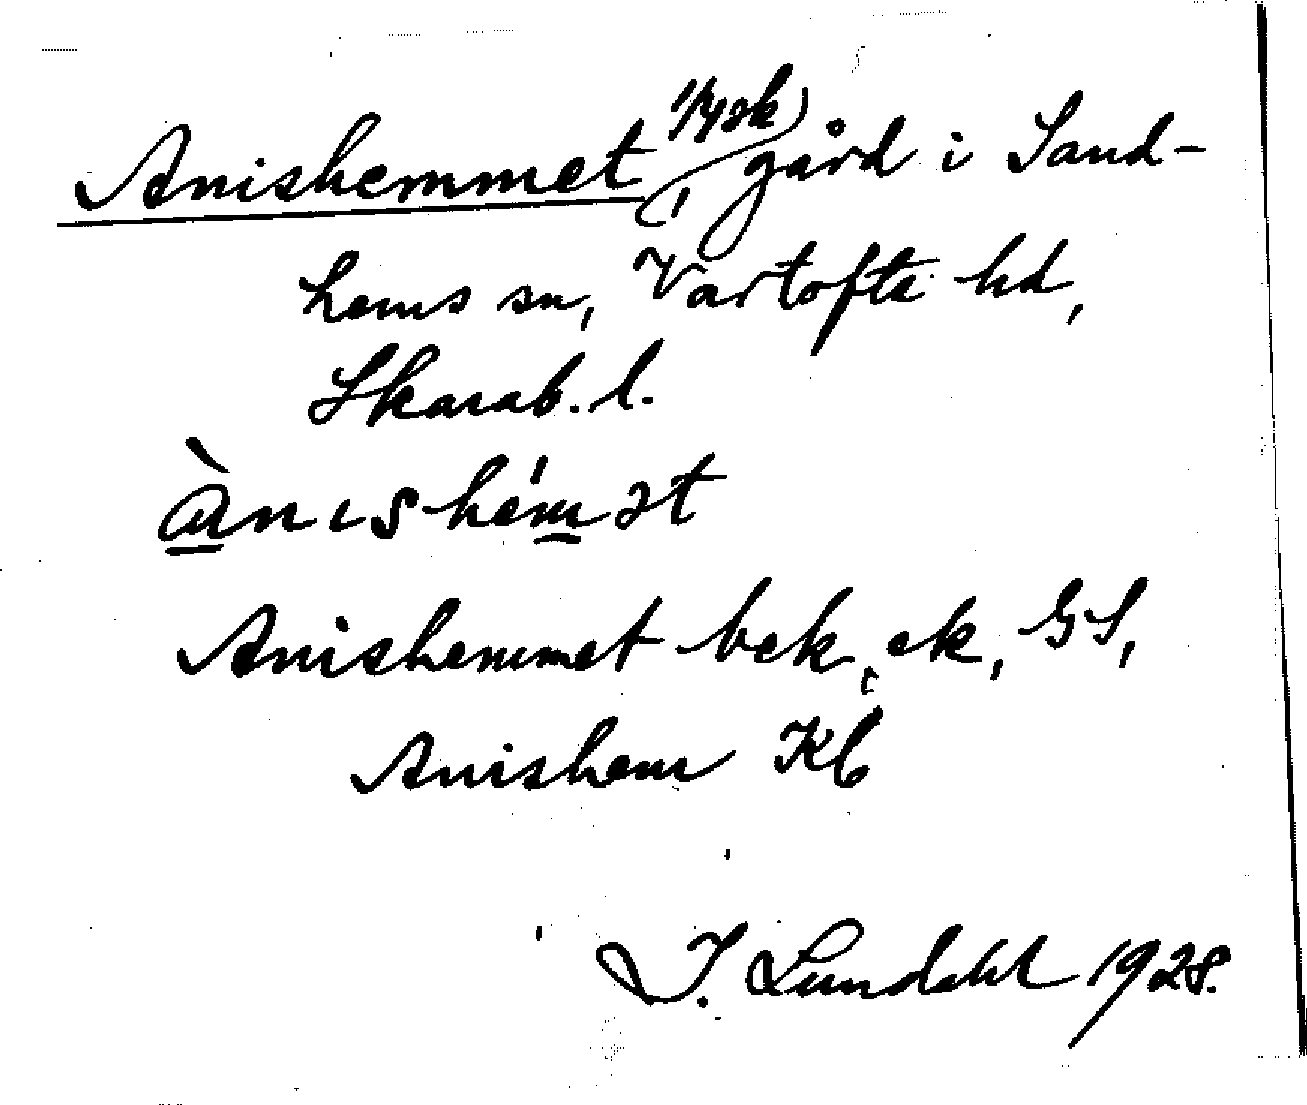 Anishemmet, 1/4 sk gård i Sand-
hems sn, Vartofta hd,
Skarab. l.
ànıshémət
Anishemmet bek, ek, GS,
Anishem Kb
I. Lundahl 1928.